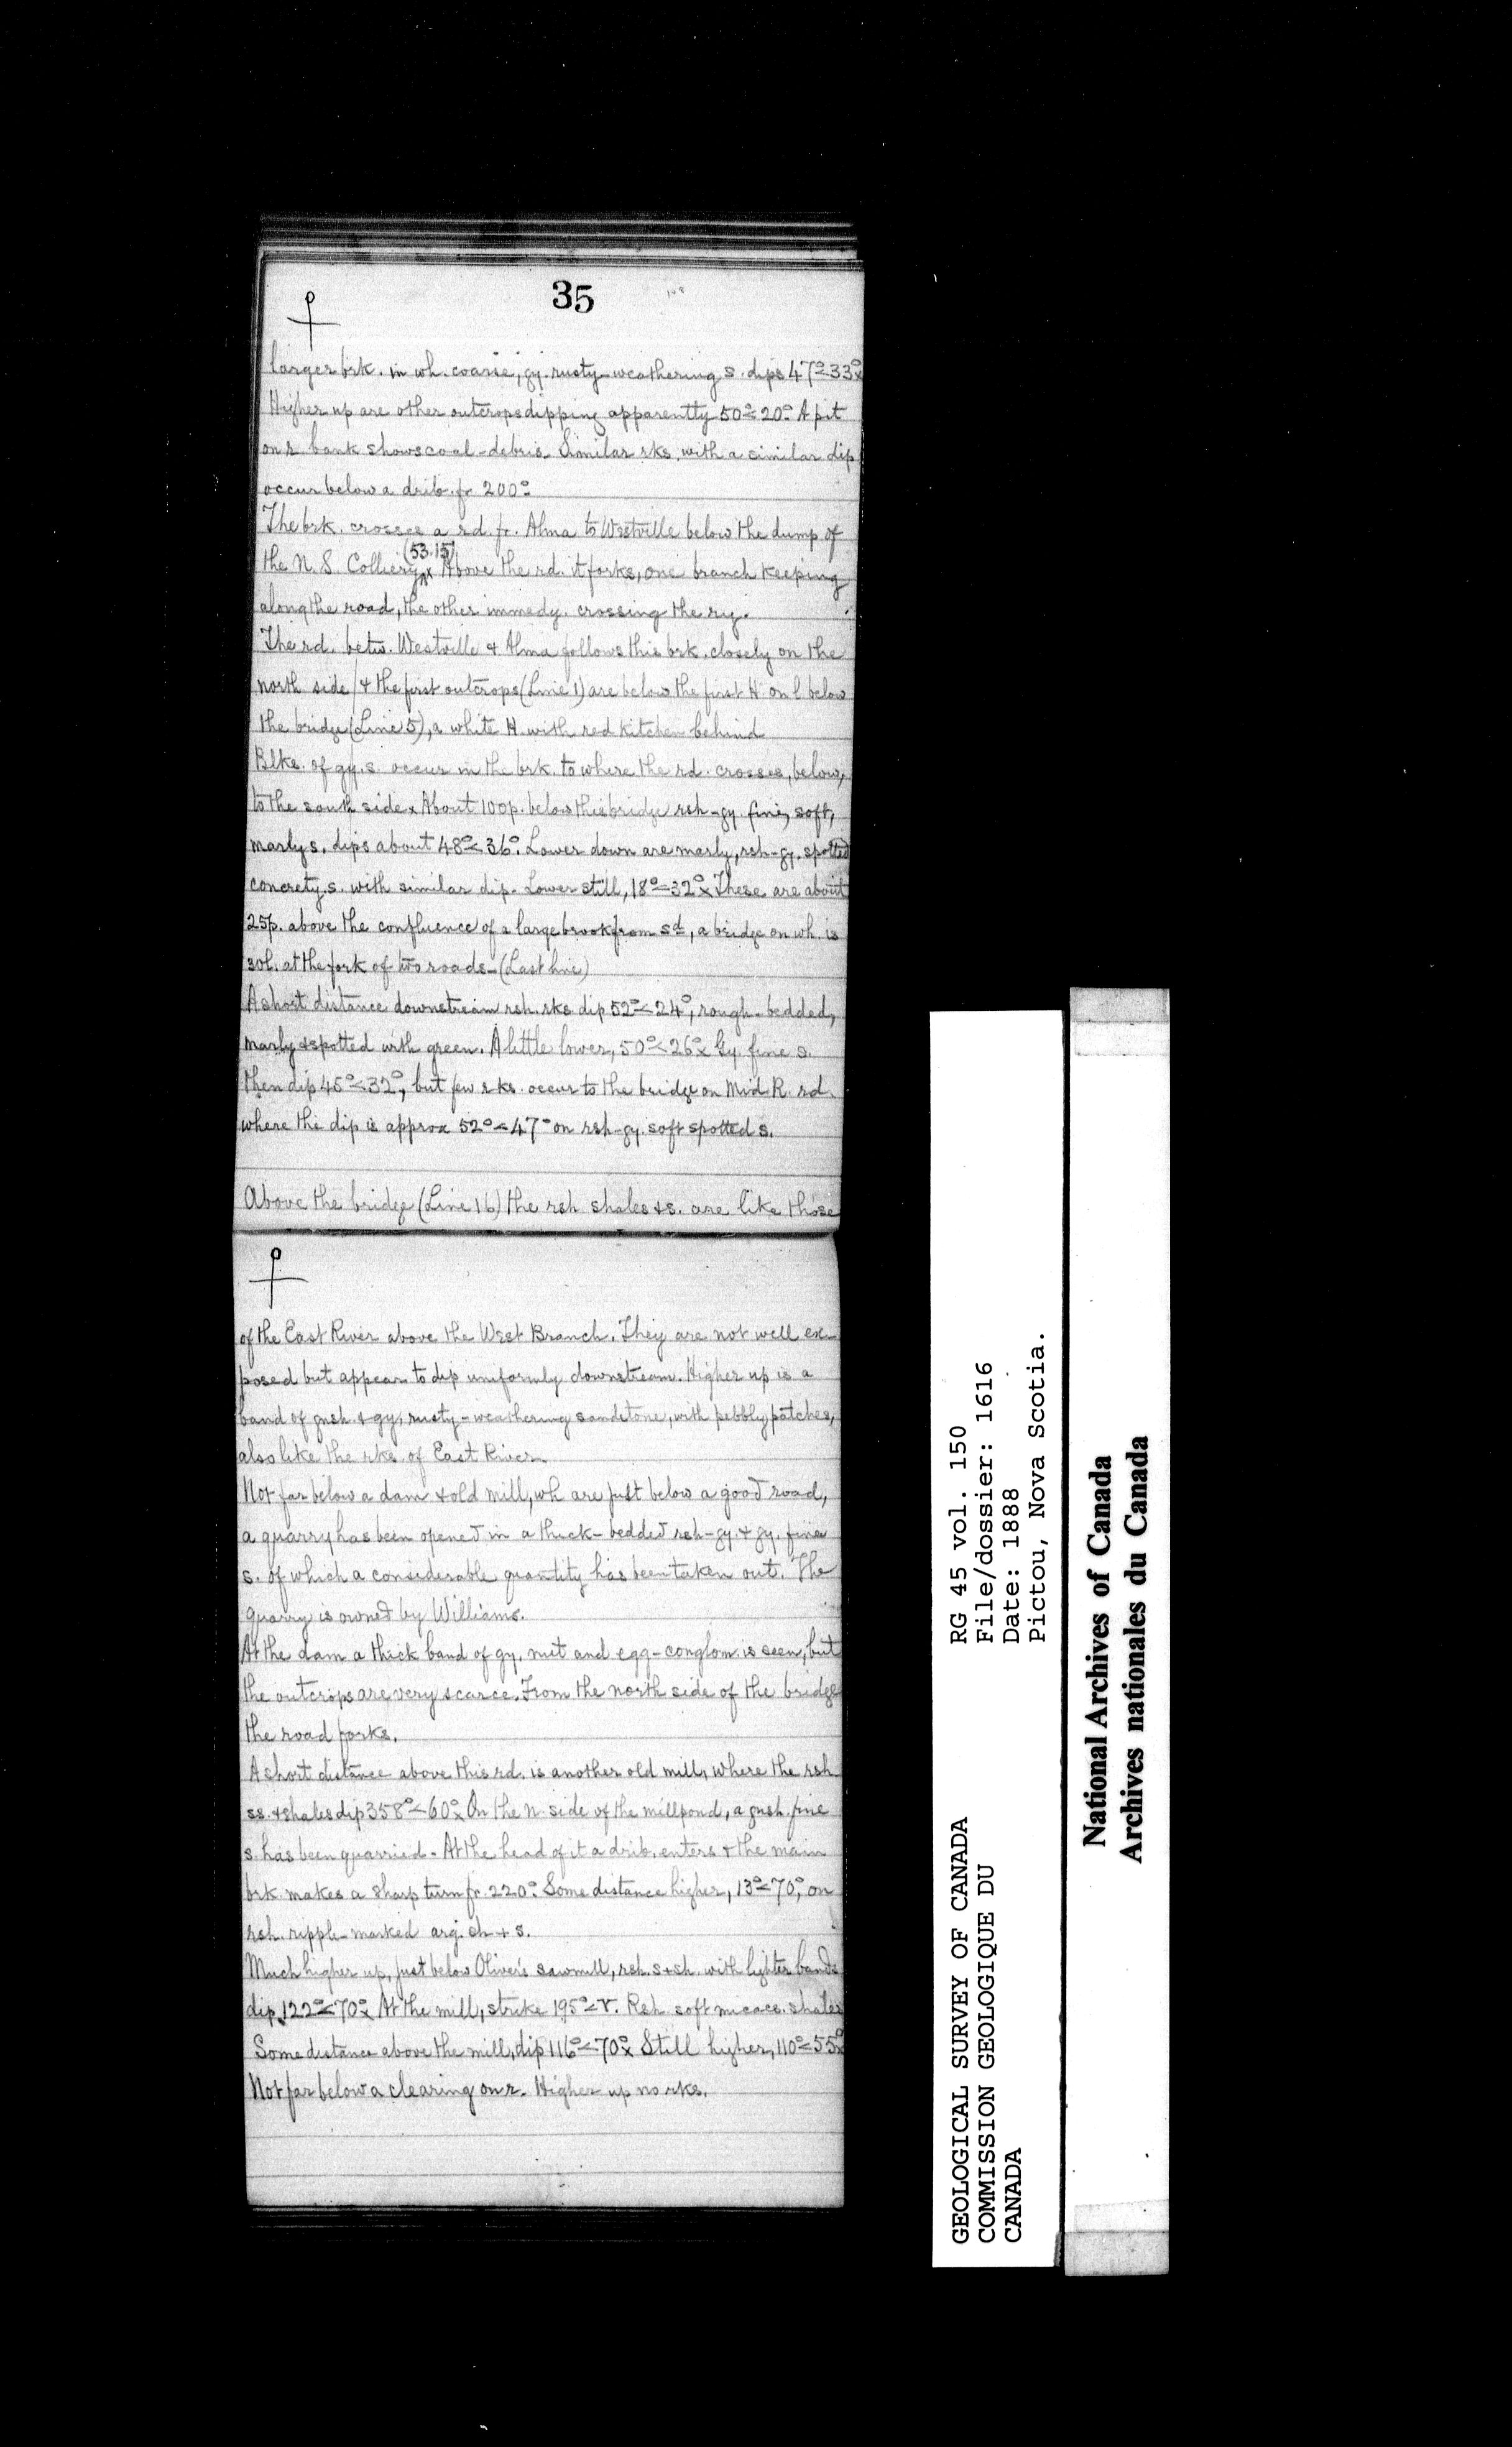 35
larger brk. in wh. coarse, gy. rusty-weathering s. dips 47°<33°x
Higher up are other outcrops dipping apparently 50°<20°. A pit
on r. bank shows coal-debris. Similar rks. with a similar dip
occur below a drib. fr. 200°.
The brk. crosses a rd. fr. Alma to Westville below the dump of
(53.15)
the N. S. Colliery x Above the rd. it forks, one branch keeping
along the road, the other immedy. crossing the ry.
The rd. betw. Westville & Alma follows this brk. closely on the
north side & the first outcrops (Line 1) are below the first H. on l below
the bridge (Line 5), a white H. with red kitchen behind
Blks. of gy. s. occur in the brk. to where the rd. crosses, below,
to the south side x About 100p. below this bridge rsh-gy. fine, soft,
marly s. dips about 48°<36°. Lower down are marly, rsh-gy. spotted
concrety. s. with similar dip. Lower still, 18°<32°x These are about
25p. above the confluence of a large brook from sd, a bridge on wh. is
30l. at the fork of two roads - (Last line)
A short distance downstream rsh. rks. dip 52°<24°, rough-bedded,
marly & spotted with green. A little lower, 50°<26°x Gy. fine s.
then dip 45°<32°, but few rks. occur to the bridge on Mid R. rd.
where the dip is approx 52°<47° on rsh-gy. soft spotted s.
Above the bridge (Line 16) the rsh shales & s. are like those
of the East River above the West Branch. They are not well ex-
posed but appear to dip uniformly downstream. Higher up is a
band of gnsh. & gy. rusty-weathering sandstone, with pebbly patches,
also like the rks. of East River.
Not far below a dam & old mill, wh are just below a good road,
a quarry has been opened in a thick-bedded rsh-gy. & gy. fine
s. of which a considerable quantity has been taken out. The
quarry is owned by Williams.
At the dam a thick band of gy. nut and egg-conglom. is seen, but
the outcrops are very scarce. From the north side of the bridge
the road forks.
A short distance above this rd. is another old mill, where the rsh
ss. & shales dip 358°<60°x On the n. side of the millpond, a gnsh. fine
s. has been quarried. At the head of it a drib. enters & the main
brk. makes a sharp turn fr. 220°. Some distance higher, 13°<70°, on
rsh. ripple-marked arg. sh & s.
Much higher up, just below Oliver's sawmill, rsh. s & sh. with lighter bands
dip 122°<70°x At the mill, strike 195°<V. Rsh. soft micace. shales
Some distance above the mill, dip 116°<70°x Still higher, 110°<55°x
Not far below a clearing on r. Higher up no rks.
GEOLOGICAL SURVEY OF CANADA
COMMISSION GEOLOGIQUE DU
CANADA
RG 45 vol. 150
File/dossier: 1616
Date: 1888
Pictou, Nova Scotia.
National Archives of Canada
Archives nationales du Canada